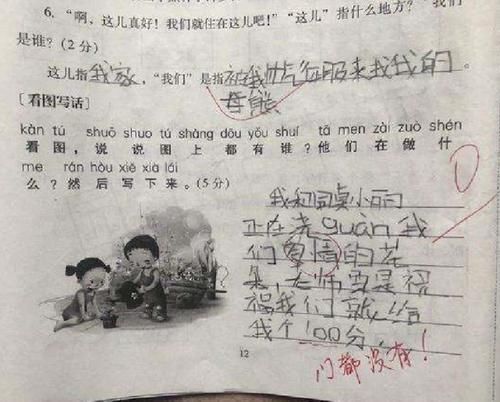 6. “啊，这儿真好！我们就住在这儿吧！”“这儿”指什么地方？“我们”
是谁？(2 分)
这儿指我家，“我们”是指被我帅气征服来找我的
母熊。
[看图写话]
kàn tú shuō shuo tú shàng dōu yǒu shuí tā men zài zuò shén
看图，说说图上都有谁？他们在做什
me rán hòu xiě xià lái
么？然后写下来。(5 分)
我和同桌小丽
正在浇guàn我
们爱情的花
朵，老师要是祝
福我们就给
我个100分，
门都没有！
12